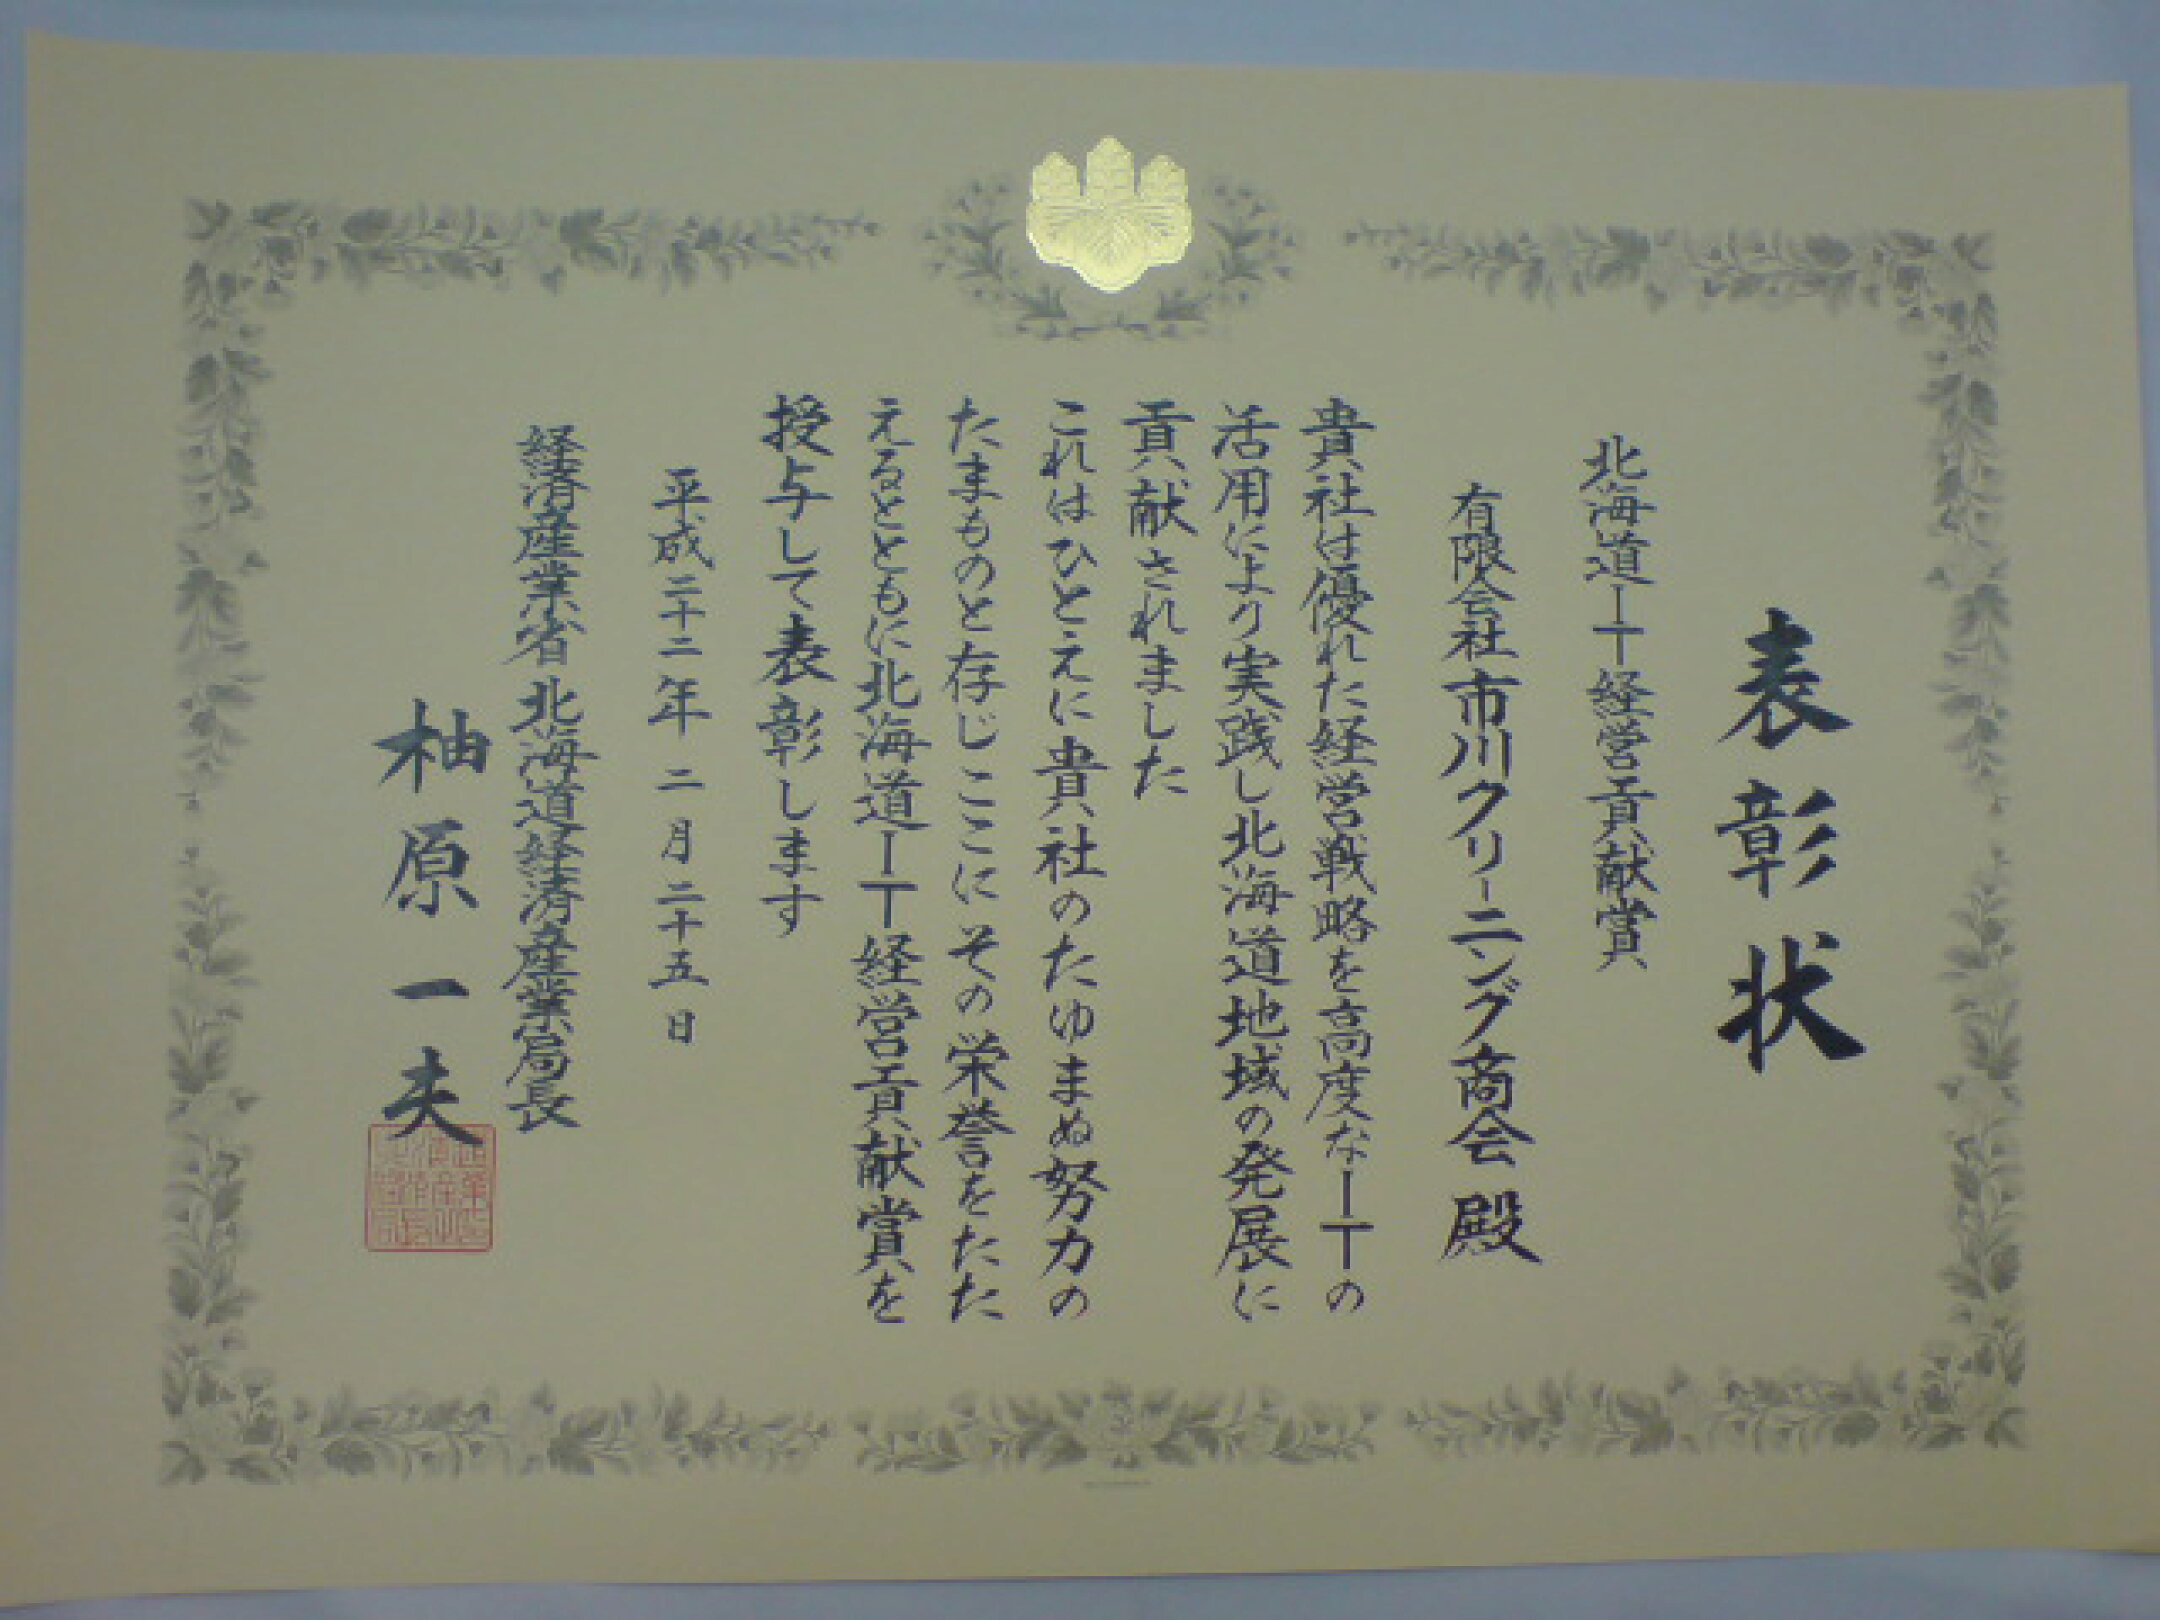 表彰状
北海道IT経営貢献賞
有限会社市川クリーニング商会 殿
貴社は優れた経営戦略を高度なITの
活用により実践し北海道地域の発展に
貢献されました
これはひとえに貴社のたゆまぬ努力の
たまものと存じここにその栄誉をたた
えるとともに北海道IT経営貢献賞を
授与して表彰します
平成二十二年 二月 二十五日
経済産業省 北海道経済産業局長
柚原一夫